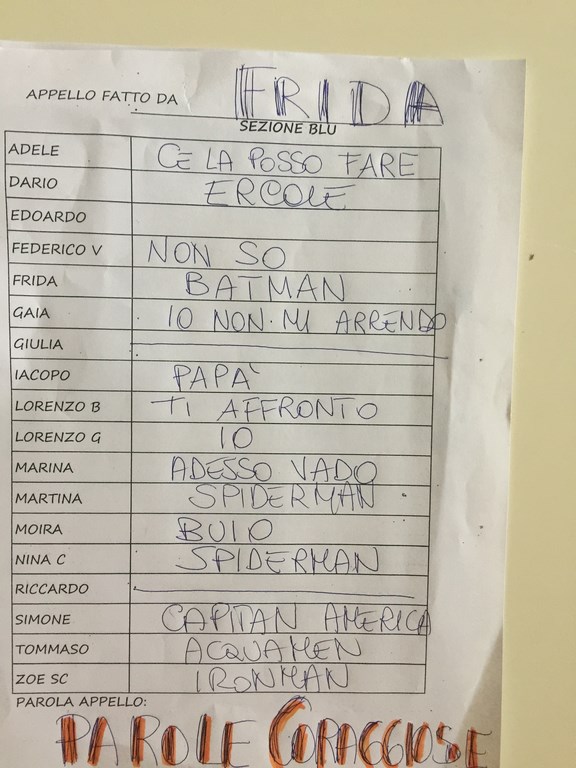 APPELLO FATTO DA FRIDA
SEZIONE BLU
ADELE CE LA POSSO FARE
DARIO ERCOLE
EDOARDO
FEDERICO V NON SO
FRIDA BATMAN
GAIA IO NON MI ARRENDO
GIULIA
IACOPO PAPA'
LORENZO B TI AFFRONTO
LORENZO G IO
MARINA ADESSO VADO
MARTINA SPIDERMAN
MOIRA BUIO
NINA C SPIDERMAN
RICCARDO
SIMONE CAPITAN AMERICA
TOMMASO ACQUAMEN
ZOE SC IRONMAN
PAROLA APPELLO:
PAROLE CORAGGIOSE